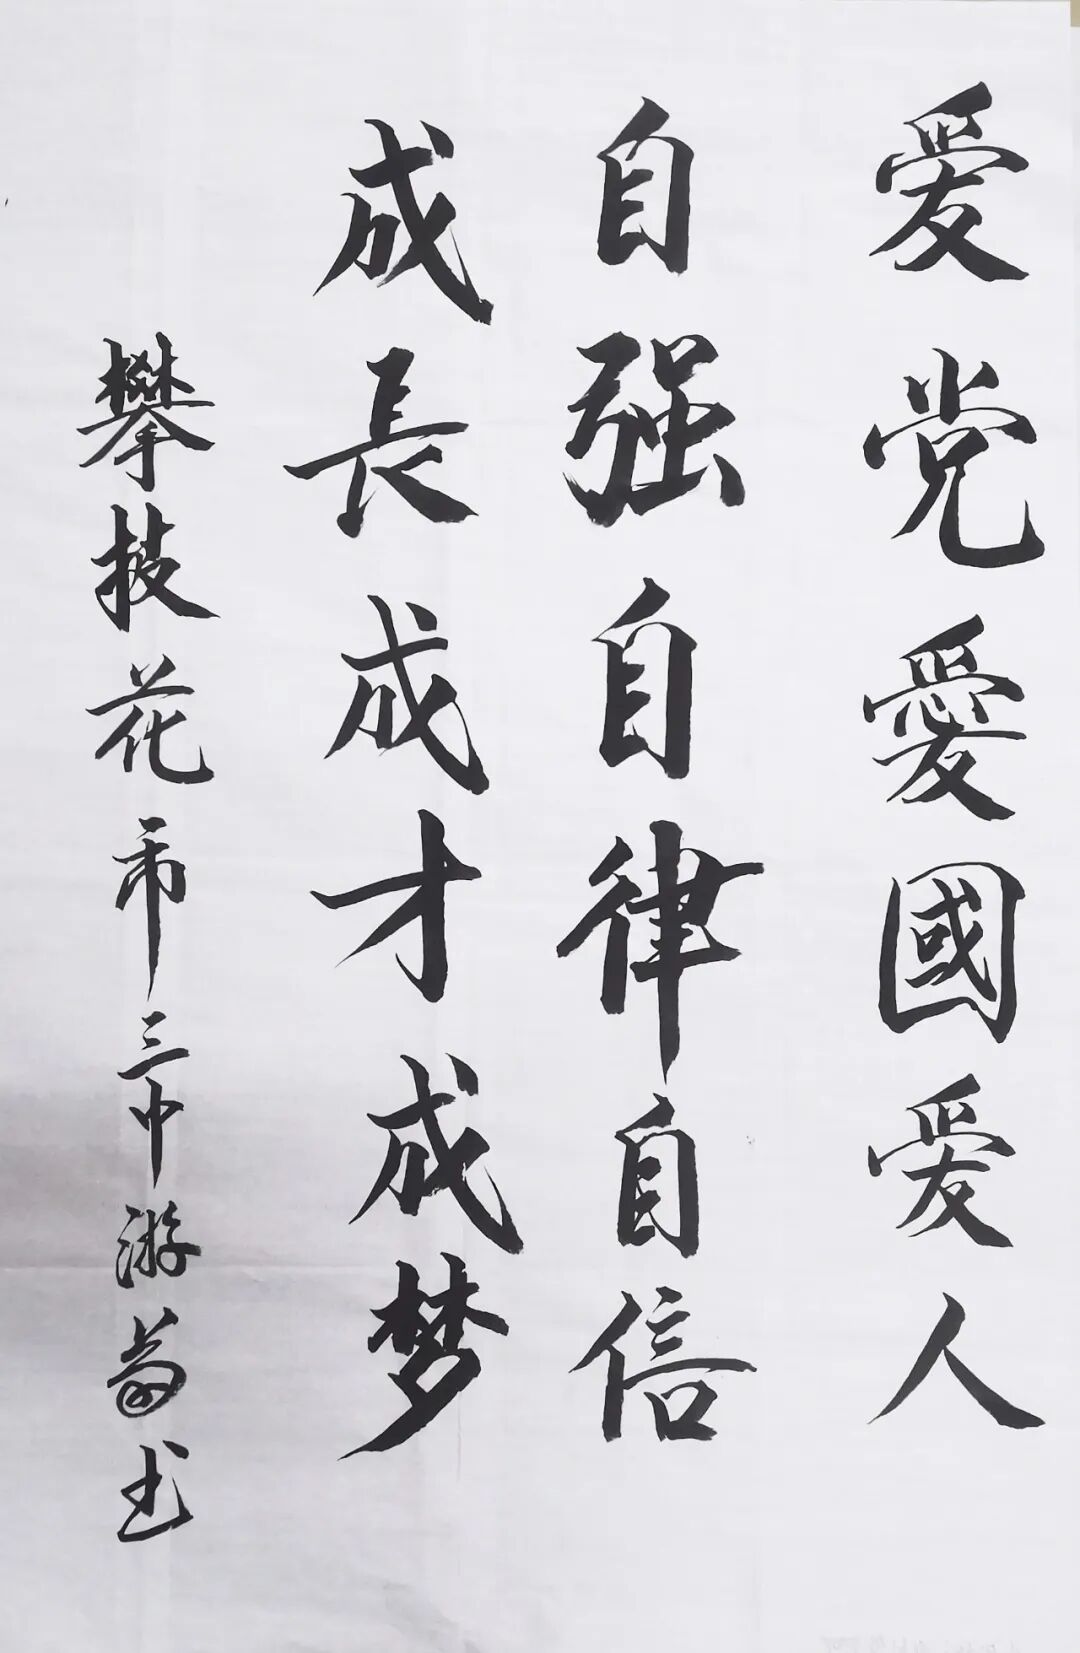 爱党愛國爱人
自强自律自信
成長成才成梦
攀枝花市三中游 书